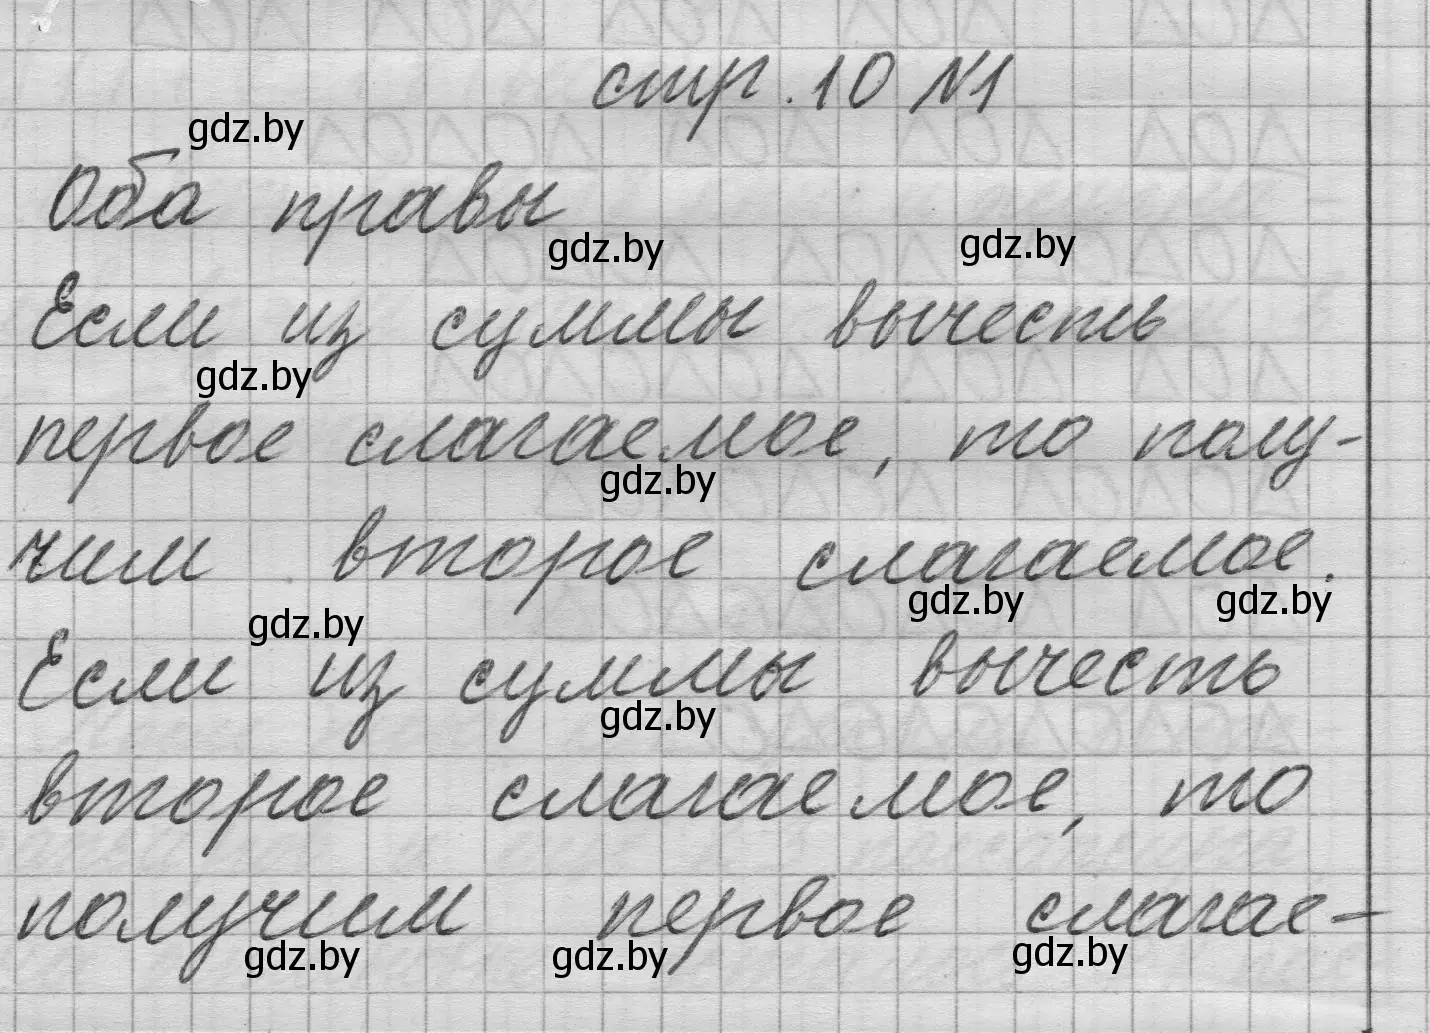 стр. 10 №1
gdz.by
Оба правы
gdz.by gdz.by
Если из суммы вычесть
gdz.by
первое слагаемое, то полу-
gdz.by
чим второе слагаемое.
gdz.by gdz.by
gdz.by
Если из суммы вычесть
gdz.by
второе слагаемое, то
получим первое слагае-
gdz.by gdz.by gdz.by